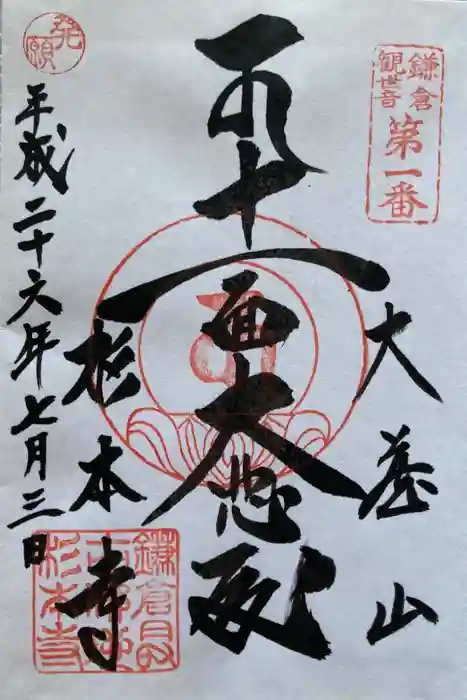 鎌倉
観世音
第一番
大蔵山
十一面大悲殿
杉本寺
発願
平成二十六年七月三日
杉本寺